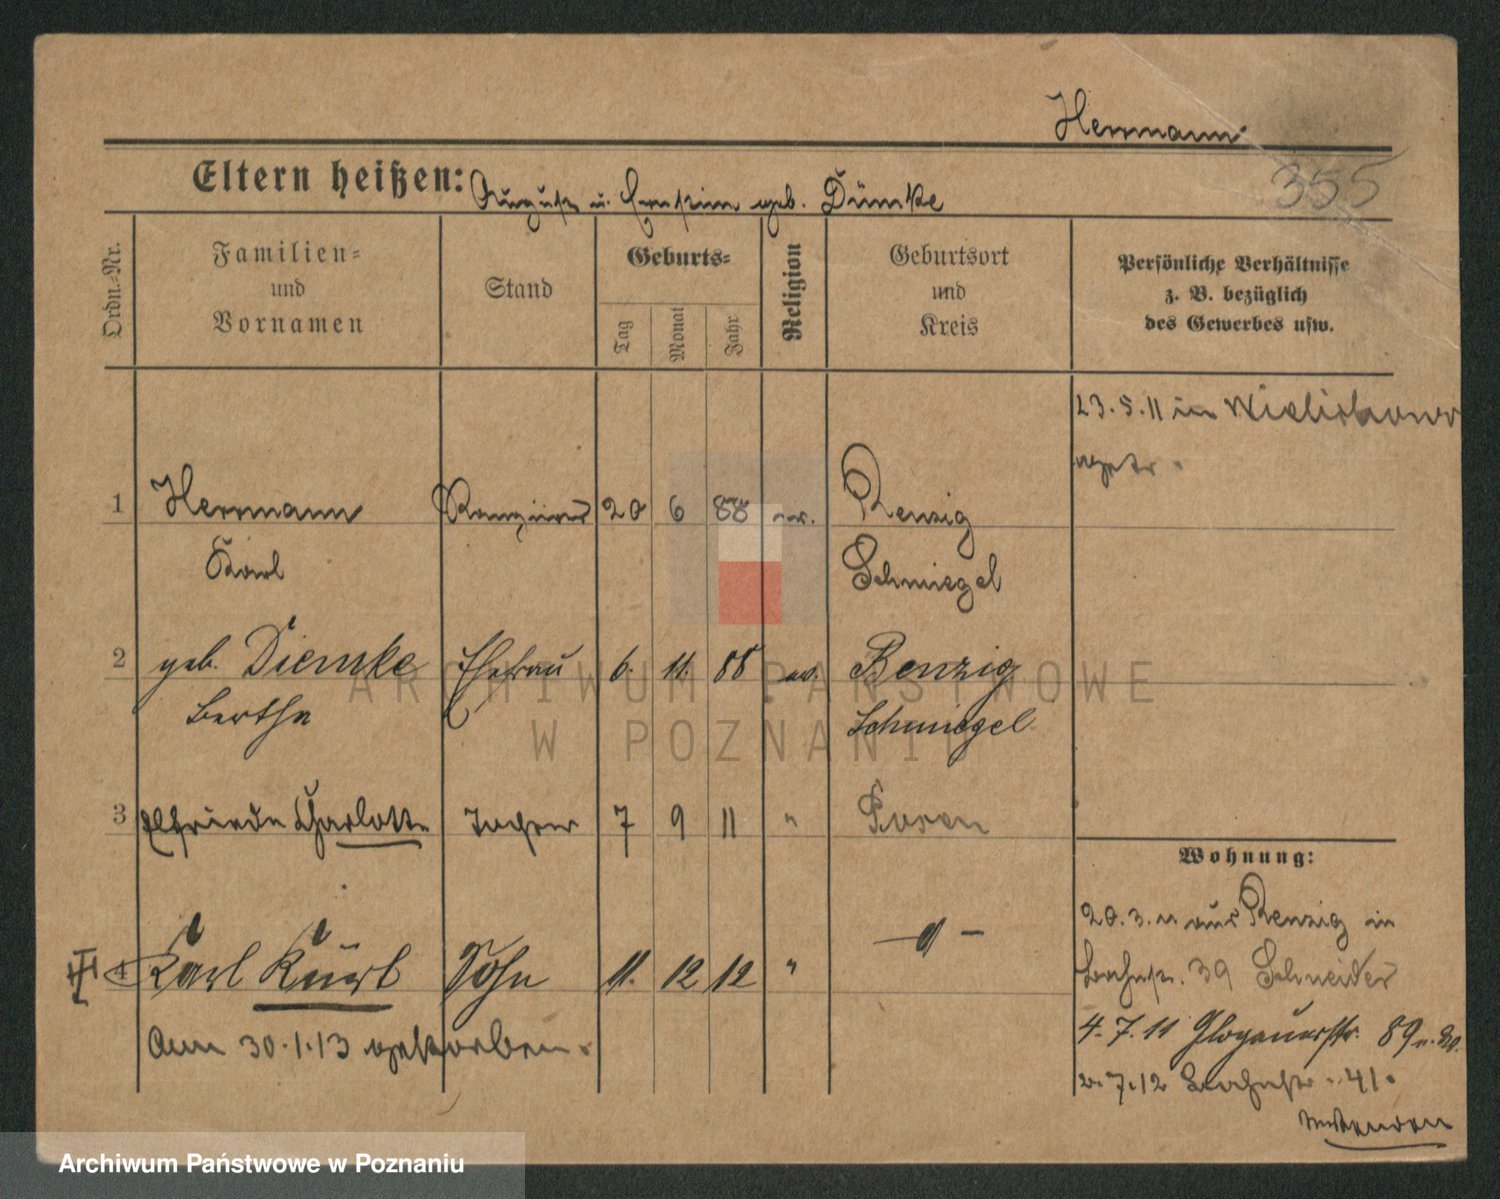 Herrmann
355
Eltern heißen: August u. Ernstine geb. Dümke
Ordn.-Nr.
Familien- und Vornamen
Stand
Geburts-
Tag
Monat
Jahr
Religion
Geburtsort und Kreis
Persönliche Verhältnisse
z. B. bezüglich
des Gewerbes usw.
23.5.11 in
getr.
1 Herrmann 20 6 88 ev. Renzig
Karl Schmiegel
2 geb. Diemke Ehefrau 6. 11. 88 ev. Benzig
Bertha Schmiegel
3 Elfriede Charlotte Tochter 7 9 11 " Posen
4 Karl Kurt Sohn 11. 12 12 " - " -
Am 30.1.13 gestorben.
Wohnung:
20.3.11 aus Renzig in
Bahnstr. 39 Schneider
4.7.11 Glogauerstr. 89
2.7.12 Bahnstr. 41.
ARCHIWUM PAŃSTWOWE
W POZNANIU
Archiwum Państwowe w Poznaniu